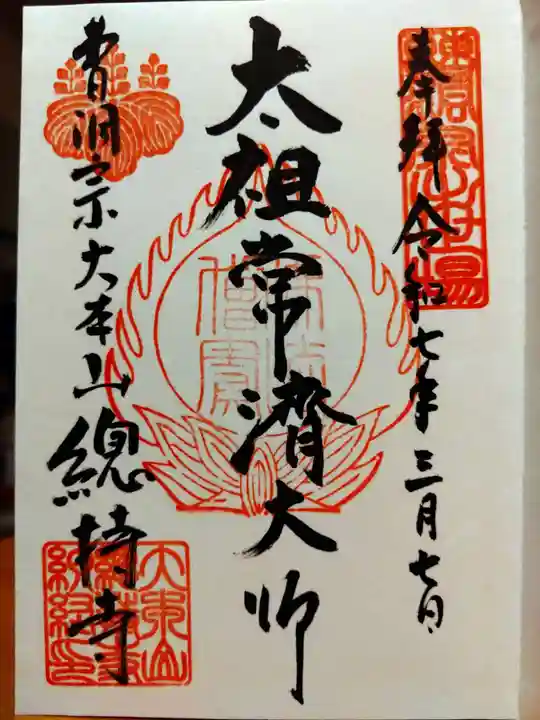 奉拝 令和七年三月七日
太祖常濟大师
曹洞宗大本山總持寺